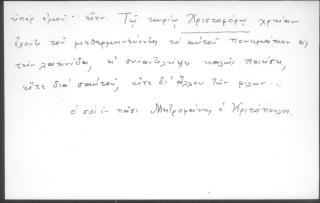 ὑπὲρ ἐμοῦ· εἶεν. Τῷ κυρίῳ Χριστοφόρῳ χρείαν
ἔχοντι τοῦ μεθερμηνεύοντος τὸ αὐτοῦ πονημάτιον εἰς
τὴν λατινίδα, εἰ συναντιλήψῃ καλῶς ποιήσεις,
εἴτε διὰ σαυτοῦ, εἴτε δι' ἄλλου τῶν φίλων...
ὁ σοὶ ἐν πᾶσι Μητροφάνης ὁ Κριτόπουλος.